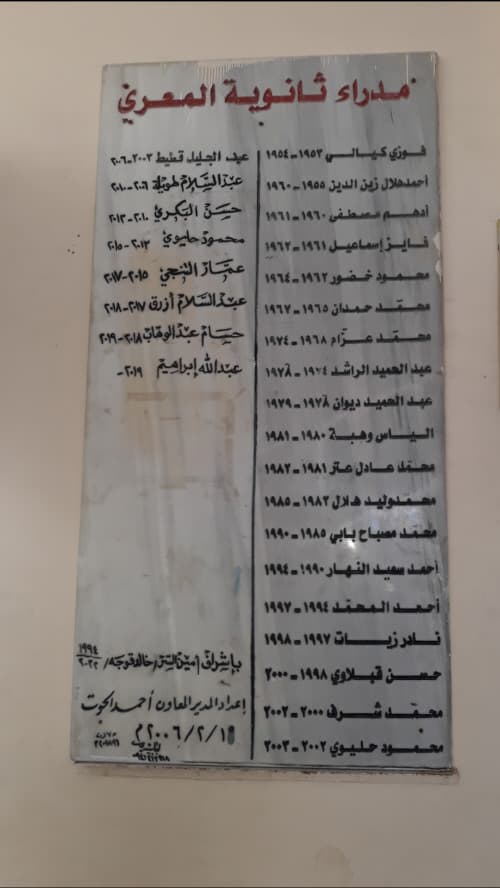 مدراء ثانوية المعري
فوزي كيالي ١٩٥٣ - ١٩٥٤
أحمد هلال زين الدين ١٩٥٥ - ١٩٦٠
أدهم مصطفى ١٩٦٠ - ١٩٦١
فايز إسماعيل ١٩٦١ - ١٩٦٢
محمود خضور ١٩٦٢ - ١٩٦٤
محمّد حمدان ١٩٦٥ - ١٩٦٧
محمّد عزّام ١٩٦٨ - ١٩٧٤
عبد الحميد الراشد ١٩٧٤ - ١٩٧٨
عبد الحميد ديوان ١٩٧٨ - ١٩٧٩
الياس وهبة ١٩٨٠ - ١٩٨١
محمّد عادل عتر ١٩٨١ - ١٩٨٢
محمّد وليد هلال ١٩٨٢ - ١٩٨٥
محمّد مصباح بابي ١٩٨٥ - ١٩٩٠
أحمد سعيد النهار ١٩٩٠ - ١٩٩٤
أحمد المحمّد ١٩٩٤ - ١٩٩٧
نادر زيات ١٩٩٧ - ١٩٩٨
حسن قبلاوي ١٩٩٨ - ٢٠٠٠
محمّد شرف ٢٠٠٠ - ٢٠٠٢
محمود حليوي ٢٠٠٢ - ٢٠٠٣
عبد الجليل قطيط ٢٠٠٣ - ٢٠٠٦
عبد السلام طويلة ٢٠٠٦ - ٢٠١٠
حسن البكري ٢٠١٠ - ٢٠١٣
محمود حليوي ٢٠١٣ - ٢٠١٥
عمار التنجي ٢٠١٥ - ٢٠١٧
عبد السلام أزرق ٢٠١٧ - ٢٠١٨
حسام عبد الوهاب ٢٠١٨ - ٢٠١٩
عبد الله إبراهيم ٢٠١٩ -
بإشراف أمين السّر / خالد قوجه / ١٩٩٤ / ٢٠٢٢
إعداد المدير المعاون أحمد الجوت
٢٠٠٦/٢/١ م